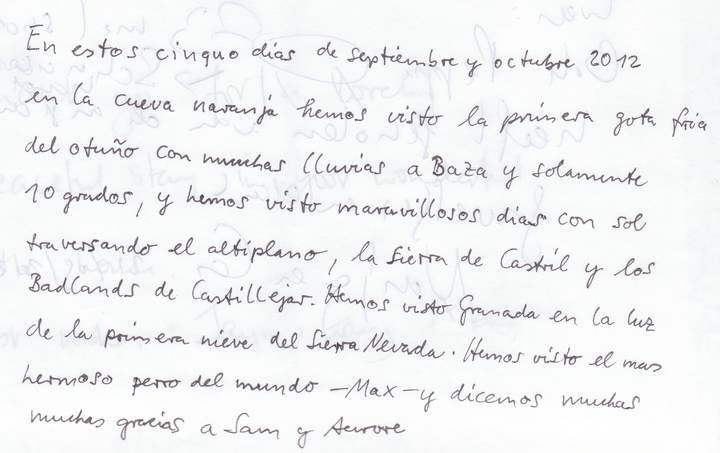 En estos cinquo días de septiembre y octubre 2012
en la cueva naranja hemos visto la primera gota fria
del otuño con muchas lluvias a Baza y solamente
10 grados, y hemos visto maravillosos días con sol
traversando el altiplano, la Sierra de Castríl y los
Badlands de Castillejar. Hemos visto Granada en la luz
de la primera nieve del Sierra Nevada. Hemos visto el mas
hermoso perro del mundo – Max – y dicemos muchas
muchas gracias a Sam y Aurore